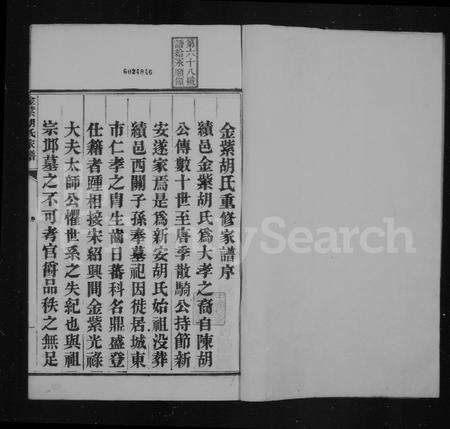 金紫胡氏重修家譜序
績邑金紫胡氏為大孝之裔自陳胡
公傳數十世至唐季散騎公持節新
安遂家焉是為新安胡氏始祖没葬
績邑西關子孫奉墓祀因徙居城東
市仁孝之胄生齒日蕃科名鼎盛登
仕籍者踵相接宋紹興間金紫光祿
大夫太師公懼世系之失紀也與祖
宗邱墓之不可考官爵品秩之無足
金紫胡氏家譜
第六十八號
譜給永順領
6024846
MySearch